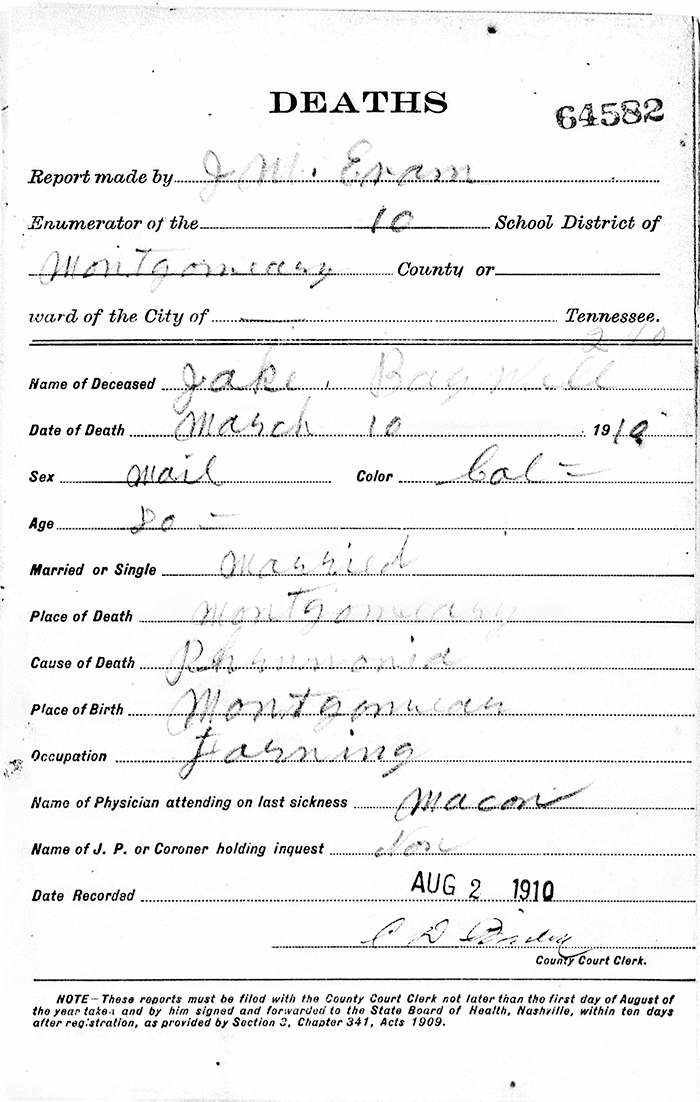 DEATHS
64582
Report made by J M. Evam
Enumerator of the 10 School District of
Montgomeary County or
ward of the City of Tennessee.
240
Name of Deceased Jake Bagwell
Date of Death March 10 1910
Sex Mail Color Col =
Age 80 -
Married or Single Married
Place of Death Montgomeary
Cause of Death Phnumonia
Place of Birth Montgomeary
Occupation Farning
Name of Physician attending on last sickness Macon
Name of J. P. or Coroner holding inquest Non
Date Recorded AUG 2 1910
C D
County Court Clerk.
NOTE—These reports must be filed with the County Court Clerk not later than the first day of August of
the year taken and by him signed and forwarded to the State Board of Health, Nashville, within ten days
after registration, as provided by Section 3, Chapter 341, Acts 1909.